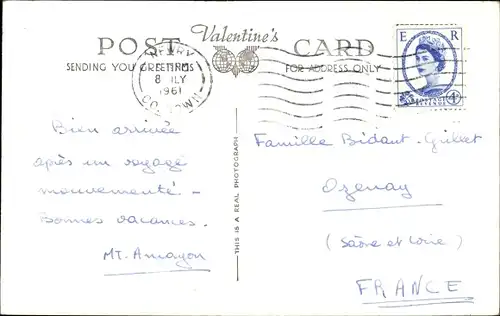 POST Valentine's CARD
SENDING YOU GREETINGS
FOR ADDRESS ONLY
E R
NEWRY
8 JLY
1961
CO. DOWN
POSTAGE
REVENUE
Bien arrivée
après un voyage
mouvementé -
Bonnes vacances.
MT. Amayon
THIS IS A REAL PHOTOGRAPH
Famille Bidaut-
Ozenay
(Saône et Loire)
FRANCE